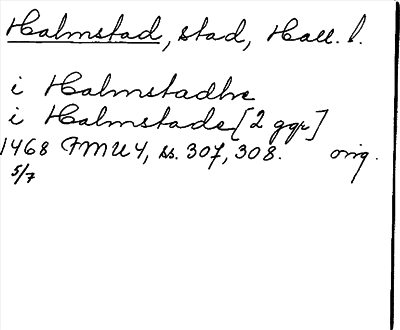 Halmstad, stad, Hall. l.
i Halmstadhe
i Halmstade [2 ggr]
1468 FMU 4, ss. 307, 308. orig.
5/7